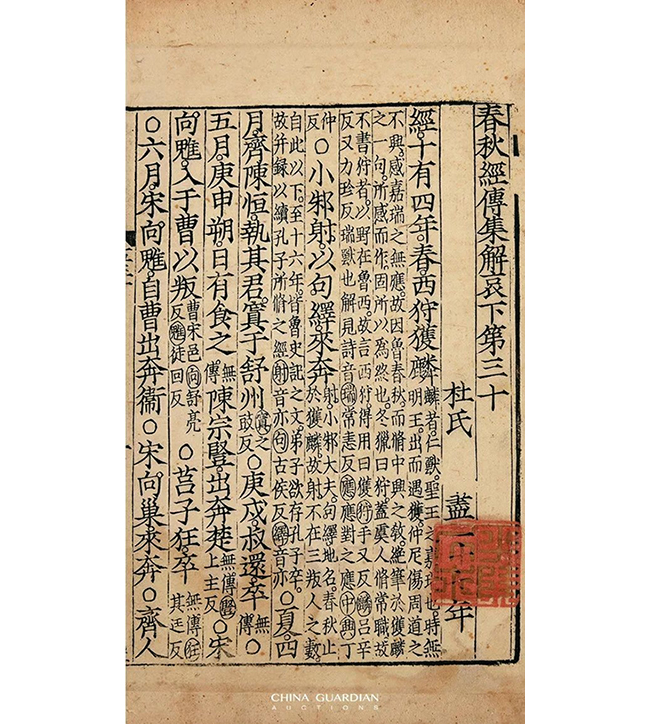 春秋經傳集解哀下第三十
杜氏 盡二十 年
經十有四年春西狩獲麟麟者仁獸聖王之嘉瑞也時無
明王出而遇獲仲尼傷周道之
不興感嘉瑞之無應故因魯春秋而脩中興之教絶筆於獲麟
之一句所感而作固所以為終也冬獵曰狩蓋虞人脩常職故
不書狩者以野在魯西故言西狩得用曰獲狩手又反麟呂辛
反又力珍反瑞獸也解見詩音瑞常恚反應應對之應中興丁
仲反〇小邾射以句繹來奔射小邾大夫句繹地名春秋止
於獲麟故射不在三叛人之數
自此以下至十六年皆魯史記之文弟子欲存孔子卒
故并録以續孔子所脩之經射音亦句古侯反繹音亦〇夏四
月齊陳恒執其君寘于舒州寘之豉反〇庚戌叔還卒無傳〇
五月庚申朔日有食之無傳陳宗豎出奔楚無傳豎上主反〇宋
向魋入于曹以叛曹宋邑向舒亮反魋徒回反〇莒子狂卒無傳狂其廷反
〇六月宋向魋自曹出奔衞〇宋向巢來奔〇齊人
CHINA GUARDIAN
AUCTIONS